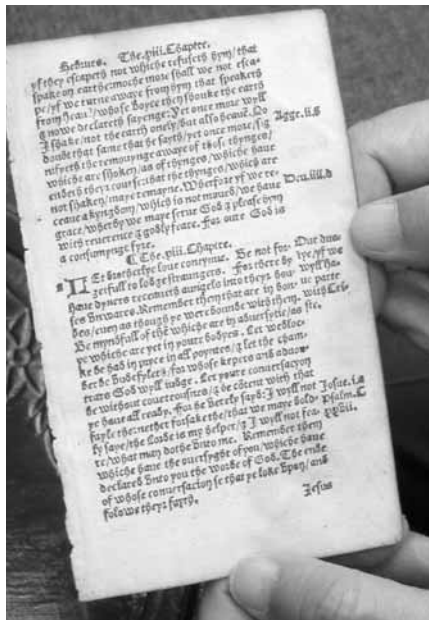 Hebrues. The.xiii.Chaptre.
yf they escapeth not whiche refuseth hym/that
spake on earthe: moche more shall we not esca-
pe/yf we turne awaye from hym that speaketh
from heauē/whose voyce then shouke the earth
& nowe declareth sayenge: Yet once more wyll
I shake/not the earth onely/but also heauē. No Agge.ii.
doubt that same that he sayth/yet once more/sig
nifyeth the remouynge awaye of those thynges/
whiche are shoken/as of thynges/whiche haue
ended theyr course: that the thynges/which are
not shaken/maye remayne. Wherfore yf we re- Deu.iiii.d
ceaue a kyngdom/which is not moued/we haue
grace/wherby we maye serue God & please hym
with reuerence & godly feare. For oure God is
a consumynge fyre.
¶ The.xiii.Chaptre.
LEt brotherlye loue contynue. Be not for-
getfull to lodge straungers. For there by
haue dyuers receaued aungels into theyr hou-
ses vnwares. Remember them that are in bon-
des/euen as though ye were bounde with them.
Be myndfull of them which are in aduersitie/as
ye which are yet in youre bodyes. Let wedloc-
ke be had in pryce in all poyntes/& let the cham-
ber be vndefyled: for whose kepers and aduou-
trars God wyll iudge. Let youre conuersacyon
be without couetousnes/& be cōtent with that
ye haue all ready. For he verely sayd: I wyll not Josue.i.
fayle the: nether forsake the/that we maye bold- Psalm.C
ly saye/the Lorde is my helper/& I wyll not fea- xviii.
re/what man dothe vnto me. Remember them
whiche haue the ouersyght of you/whiche haue
declared vnto you the worde of God. The ende
of whose conuersacion se that ye loke vpon/and
folowe theyr fayth.
Jesus